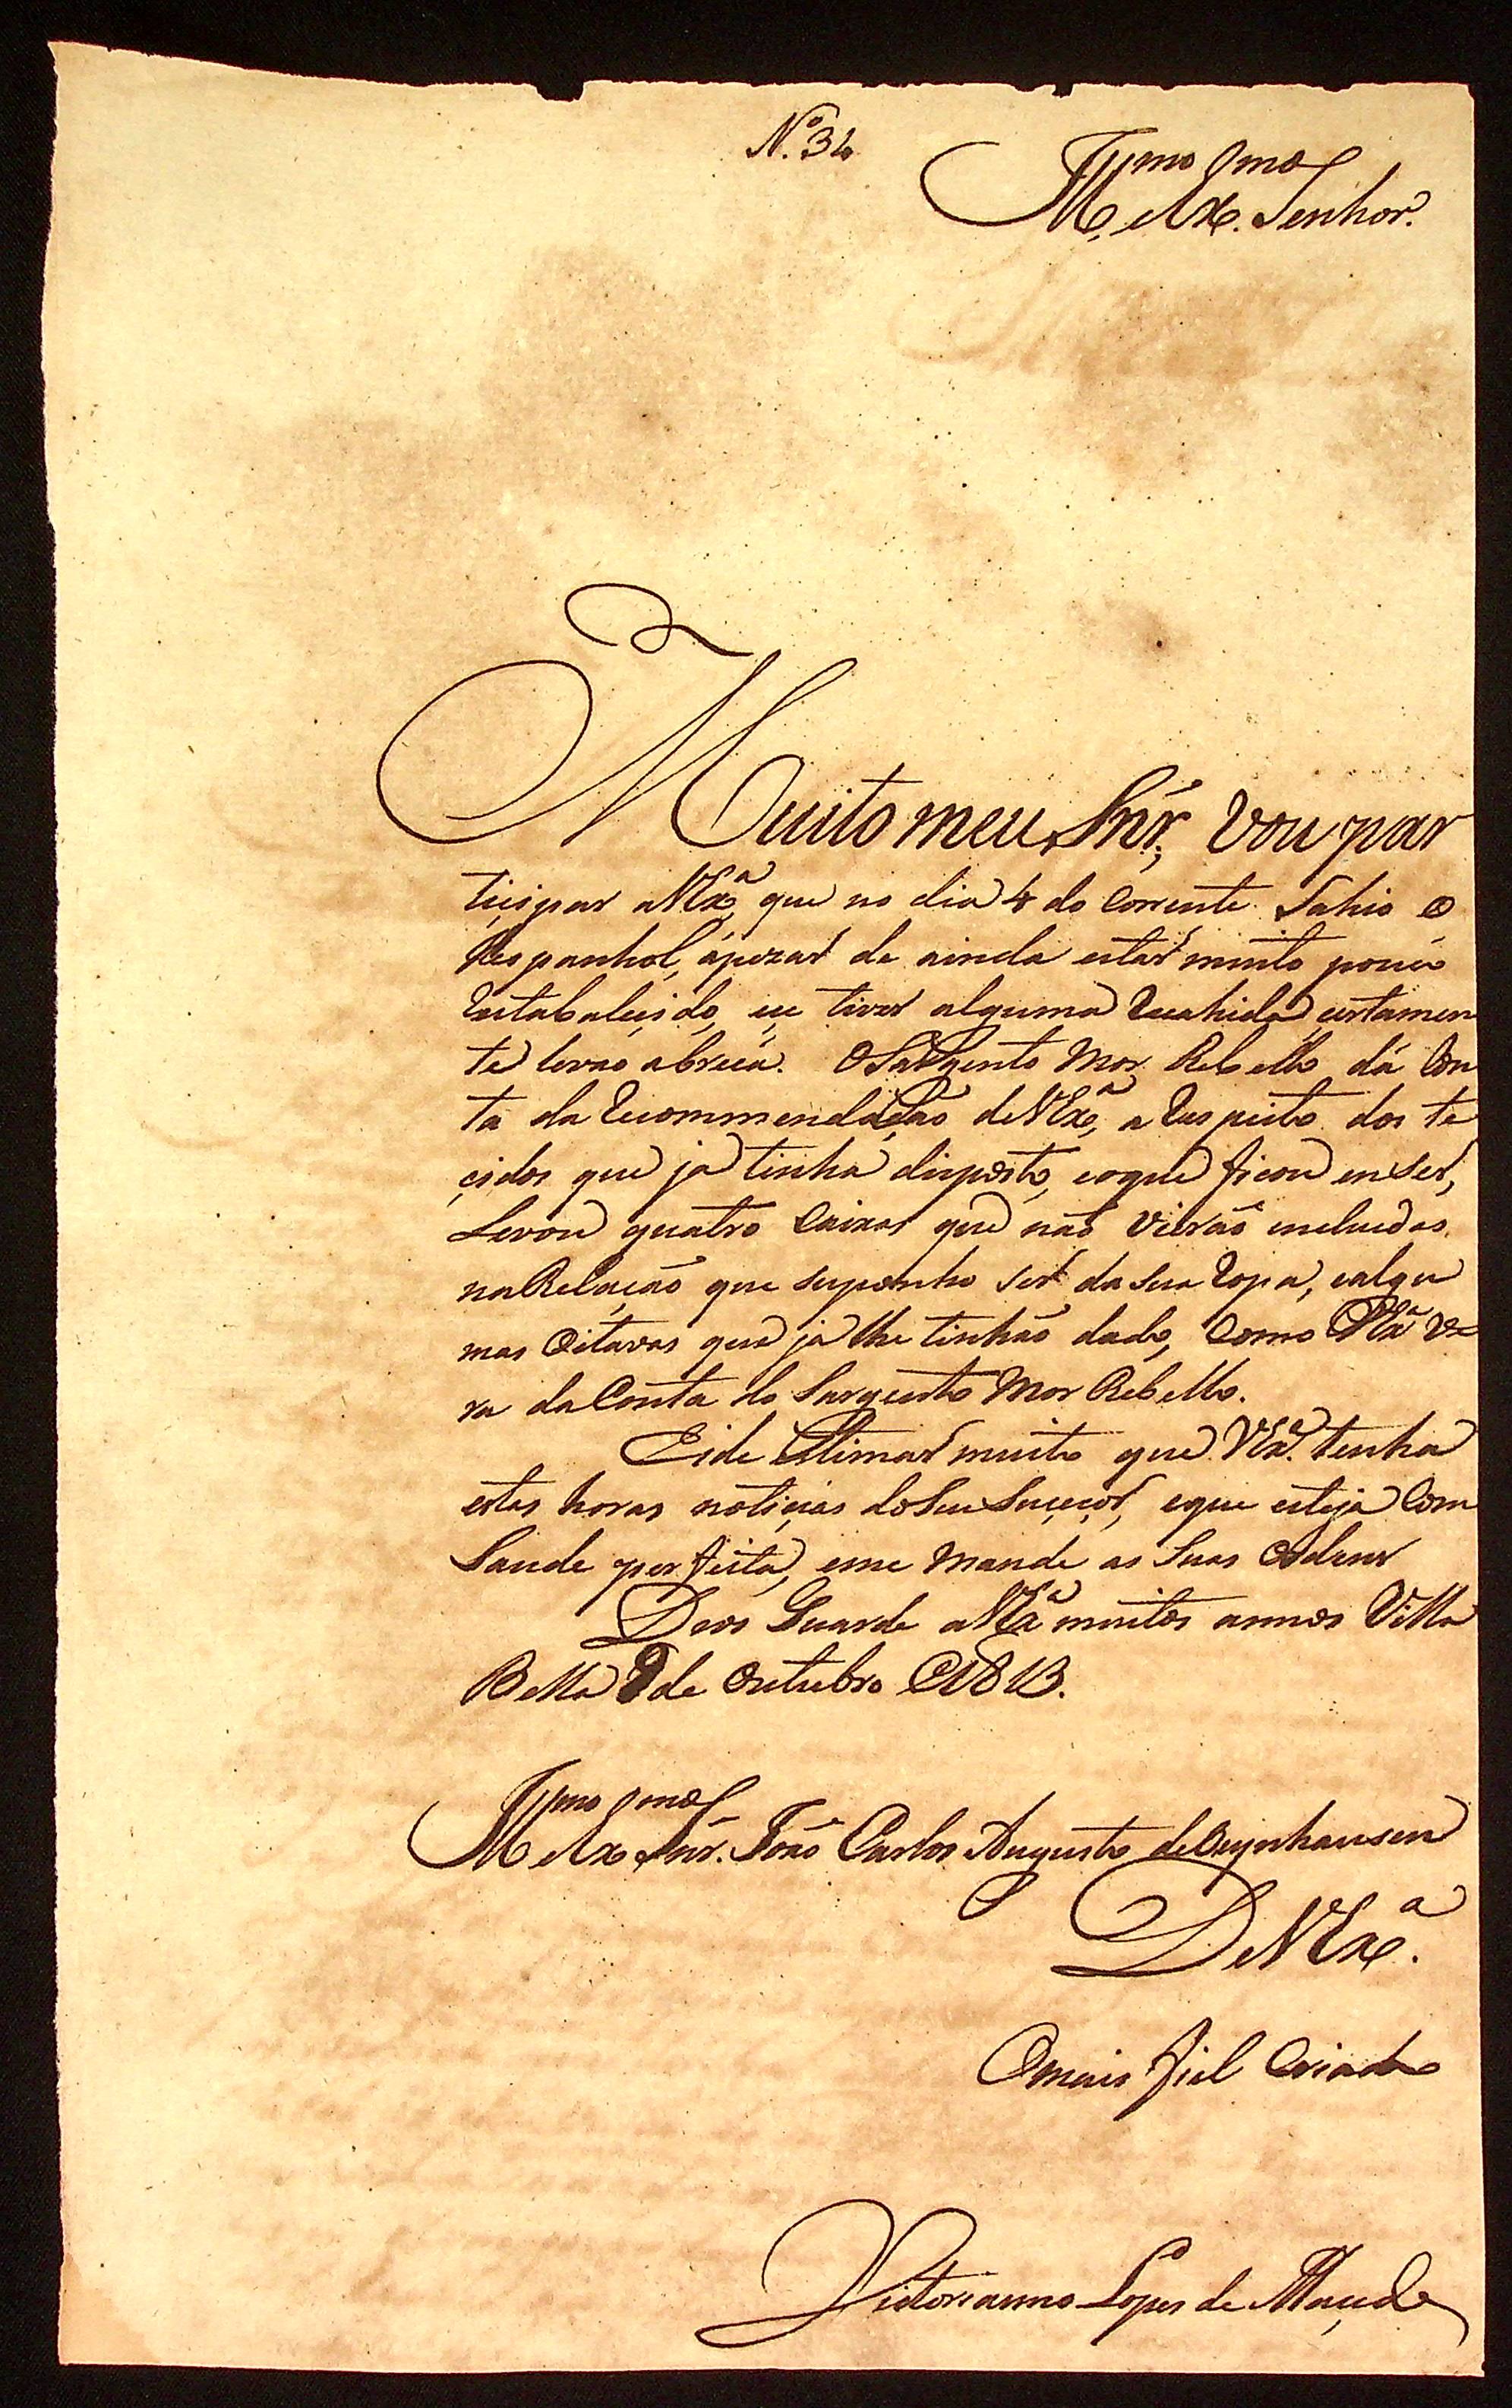 N.º 34
Ill.mo e Ex.mo Senhor.
Muito meu Snr., Vou par
ticipar a V Ex.ª, que no dia 4 do Corrente Sahio o
Hespanhol, apezar de ainda estar muito pouco
restabaleçido, se tiver alguma recahida, certamen
te levao abreca. O Sargento Mor Rebello dá Con
ta da recommendação de V Ex.ª, a respeito dos te
çidos que ja tinha disposto, eoque ficou em Ser,
Levou quatro Caixas que não Vierão incluidas
na Relação que suponho Ser da sua ropa, ealgu
mas Oitavas que ja lhe tinhão dado, Como V Ex.ª ve
ra da Conta do Sargento Mor Rebello.
Eide Estimar muito que V Ex.ª tenha
estas horas notiçias do Seu Suçeçor, eque esteja Com
Saude perfeita, eme Mande as Suas Ordens
Deos Guarde a V Ex.ª muitos annos Villa
Bella 9 de Outubro d 1813.
Ill.mo e Ex.mo Snr. João Carlos Augusto de Oeynhausen
De V Ex.ª
O mais fiel Criado
Victorianno Lopes de Maçedo